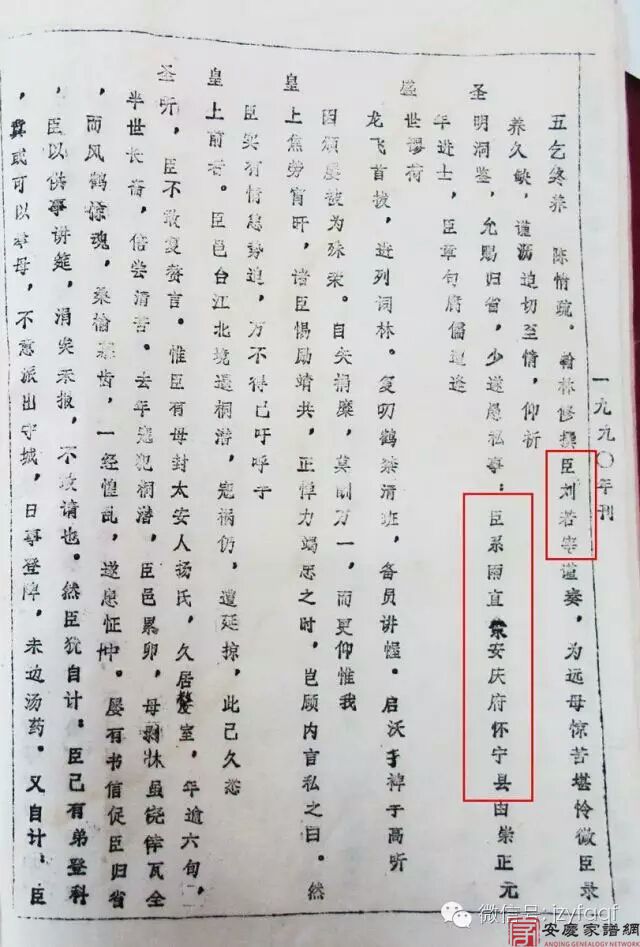 一九九〇年刊
五乞终养 陈情疏。翰林修撰臣刘若宰谨奏，为远母惊苦堪怜微臣录
养久缺，谨沥迫切至情，仰祈
圣明洞鉴，允赐归省，少遂愚私事：臣系南直隶安庆府怀宁县由崇正元
年进士，臣章句腐儒遭逢
盛世谬荷
龙飞首拔，进列词林。复叨鹤禁清班，备员讲幄。启沃于裨于高听
因颂屡被为殊荣。自矢捐糜，莫酬万一，而更仰惟我
皇上焦劳宵旰，诸臣惕励靖共，正悼力竭思之时，岂顾内言私之曰。然
臣实有情悬势迫，万不得已吁呼于
皇上前者。臣邑台江北境逼桐潜，寇祸仍，遭延掠，此己久悉
圣听，臣不敢复赘言。惟臣有母封太安人杨氏，久居嫠室，年逾六旬，
半世长斋，倍尝清苦。去年寇犯桐潜，臣邑累卵，母 虽侥倖瓦全
，而风鹤惊魂，桑榆 齿，一经惶乱，遂患怔忡。屡有书信促臣归省
，臣以供事讲筵，涓埃未报，不敢请也。然臣犹自计：臣己有弟登科
，冀或可以奉母，不意派出守城，日事登陴，未边汤药。又自计：臣
微信号: jzyfqqjf
安慶家譜網
ANQING GENEALOGY NETWORK